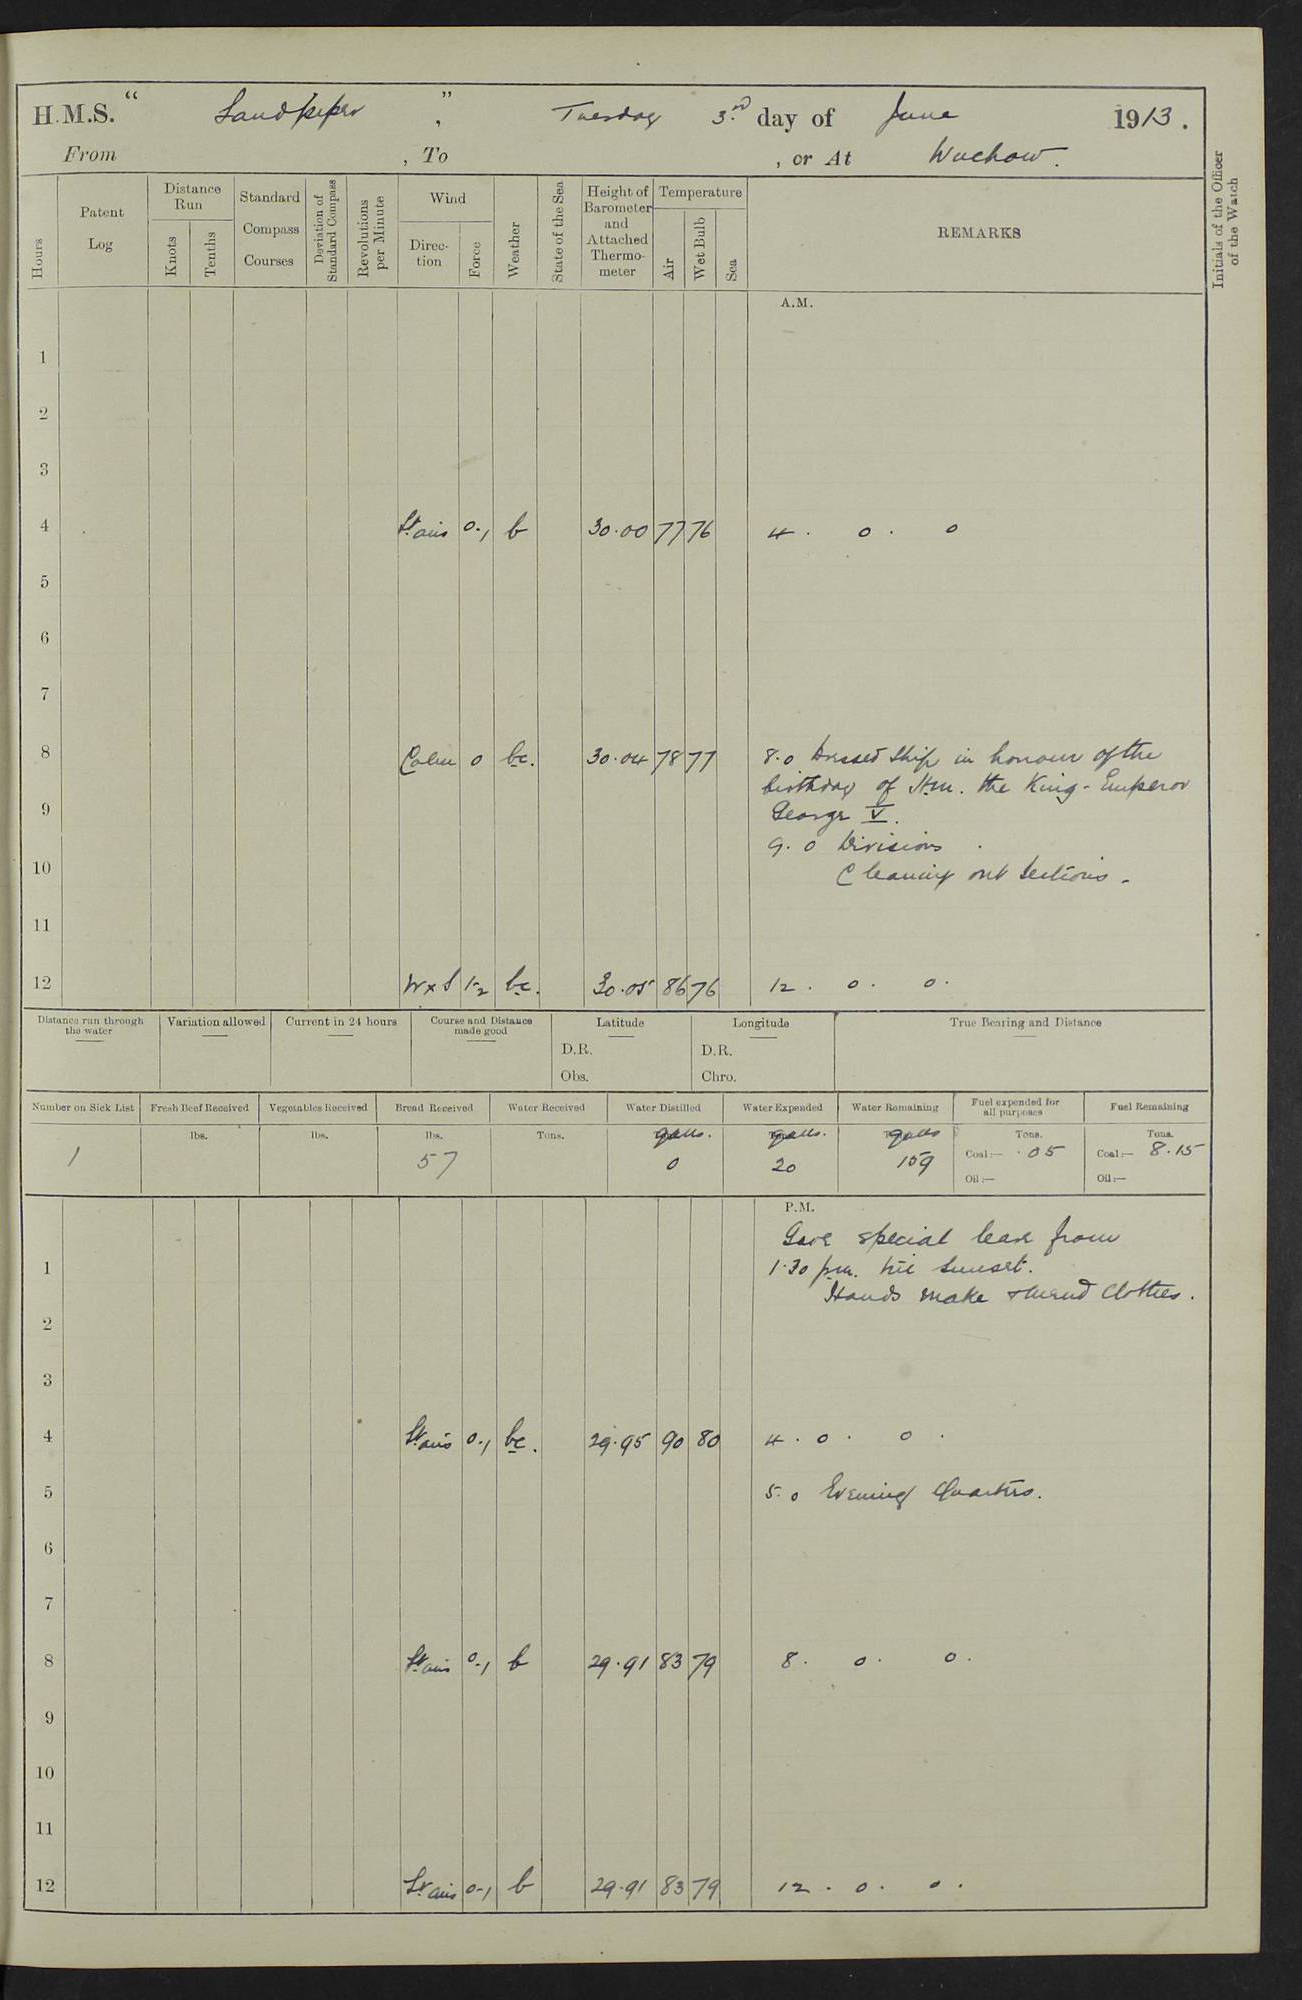 H.M.S. " Sandpiper ", Tuesday 3rd day of June 1913.
From , To , or At Wuchow.
Hours
Patent Log
Distance Run
Knots
Tenths
Standard Compass Courses
Deviation of Standard Compass
Revolutions per Minute
Wind
Direction
Force
Weather
State of the Sea
Height of Barometer and Attached Thermometer
Temperature
Air
Wet Bulb
Sea
REMARKS
Initials of the Officer of the Watch
A.M.
1
2
3
4 Lt airs 0-1 b 30.00 77 76 4. 0. 0
5
6
7
8 Calm 0 bc. 30.04 78 77 8.0 Dressed Ship in honour of the
birthday of H.M. the King-Emperor
9 George V.
9.0 Divisions.
10 Cleaning out Sections.
11
12 WxS 1-2 bc. 30.05 86 76 12. 0. 0.
Distance run through the water
Variation allowed
Current in 24 hours
Course and Distance made good
Latitude
D.R.
Obs.
Longitude
D.R.
Chro.
True Bearing and Distance
Number on Sick List
1
Fresh Beef Received
lbs.
Vegetables Received
lbs.
Bread Received
lbs.
57
Water Received
Tons.
Water Distilled
galls.
0
Water Expended
galls.
20
Water Remaining
galls
159
Fuel expended for all purposes
Tons.
Coal:— .05
Oil:—
Fuel Remaining
Tons.
Coal:— 8.15
Oil:—
P.M.
Gave special leave from
1 1.30 pm. till sunset.
Hands make & mend Clothes.
2
3
4 Lt airs 0-1 bc. 29.95 90 80 4. 0. 0.
5 5.0 Evening Quarters.
6
7
8 Lt airs 0-1 b 29.91 83 79 8. 0. 0.
9
10
11
12 Lt airs 0-1 b 29.91 83 79 12. 0. 0.